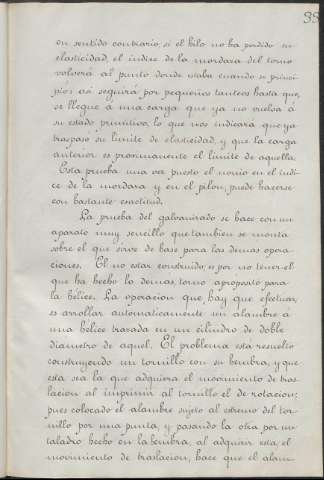 38
en sentido contrario, si el hilo no ha perdido su
elasticidad, el indice de la mordara del torno
volverá al punto donde estaba cuando se princi-
pió; asi seguirá por pequeños tanteos hasta que,
se llegue á una carga que ya no vuelva á
su estado primitivo, lo que nos indicará que ya
traspasó su limite de elasticidad, y que la carga
anterior es proximamente el limite de aquella.
Esta prueba una vez puesto el nonio en el indi-
ce de la mordara y en el pilon, puede hacerse
con bastante exactitud.
La prueba del galvanizado se hace con un
aparato muy sencillo que tambien se monta
sobre el que sirve de base para las demas opera-
ciones. El no estar construido, es por no tener el
que ha hecho lo demas, torno aproposito para
la hélice. La operacion que hay que efectuar,
es arrollar automaticamente un alambre á
una hélice trazada en un cilindro de doble
diametro de aquel. El problema está resuelto
construyendo un tornillo con su hembra, y que
esta sea la que adquiera el movimiento de tras-
lacion al imprimir al tornillo el de rotacion;
pues colocado el alambre sujeto al estremo del tor-
nillo por una punta, y pasando la otra por un
taladro hecho en la hembra, al adquirir esta el
movimiento de traslacion, hace que el alam-